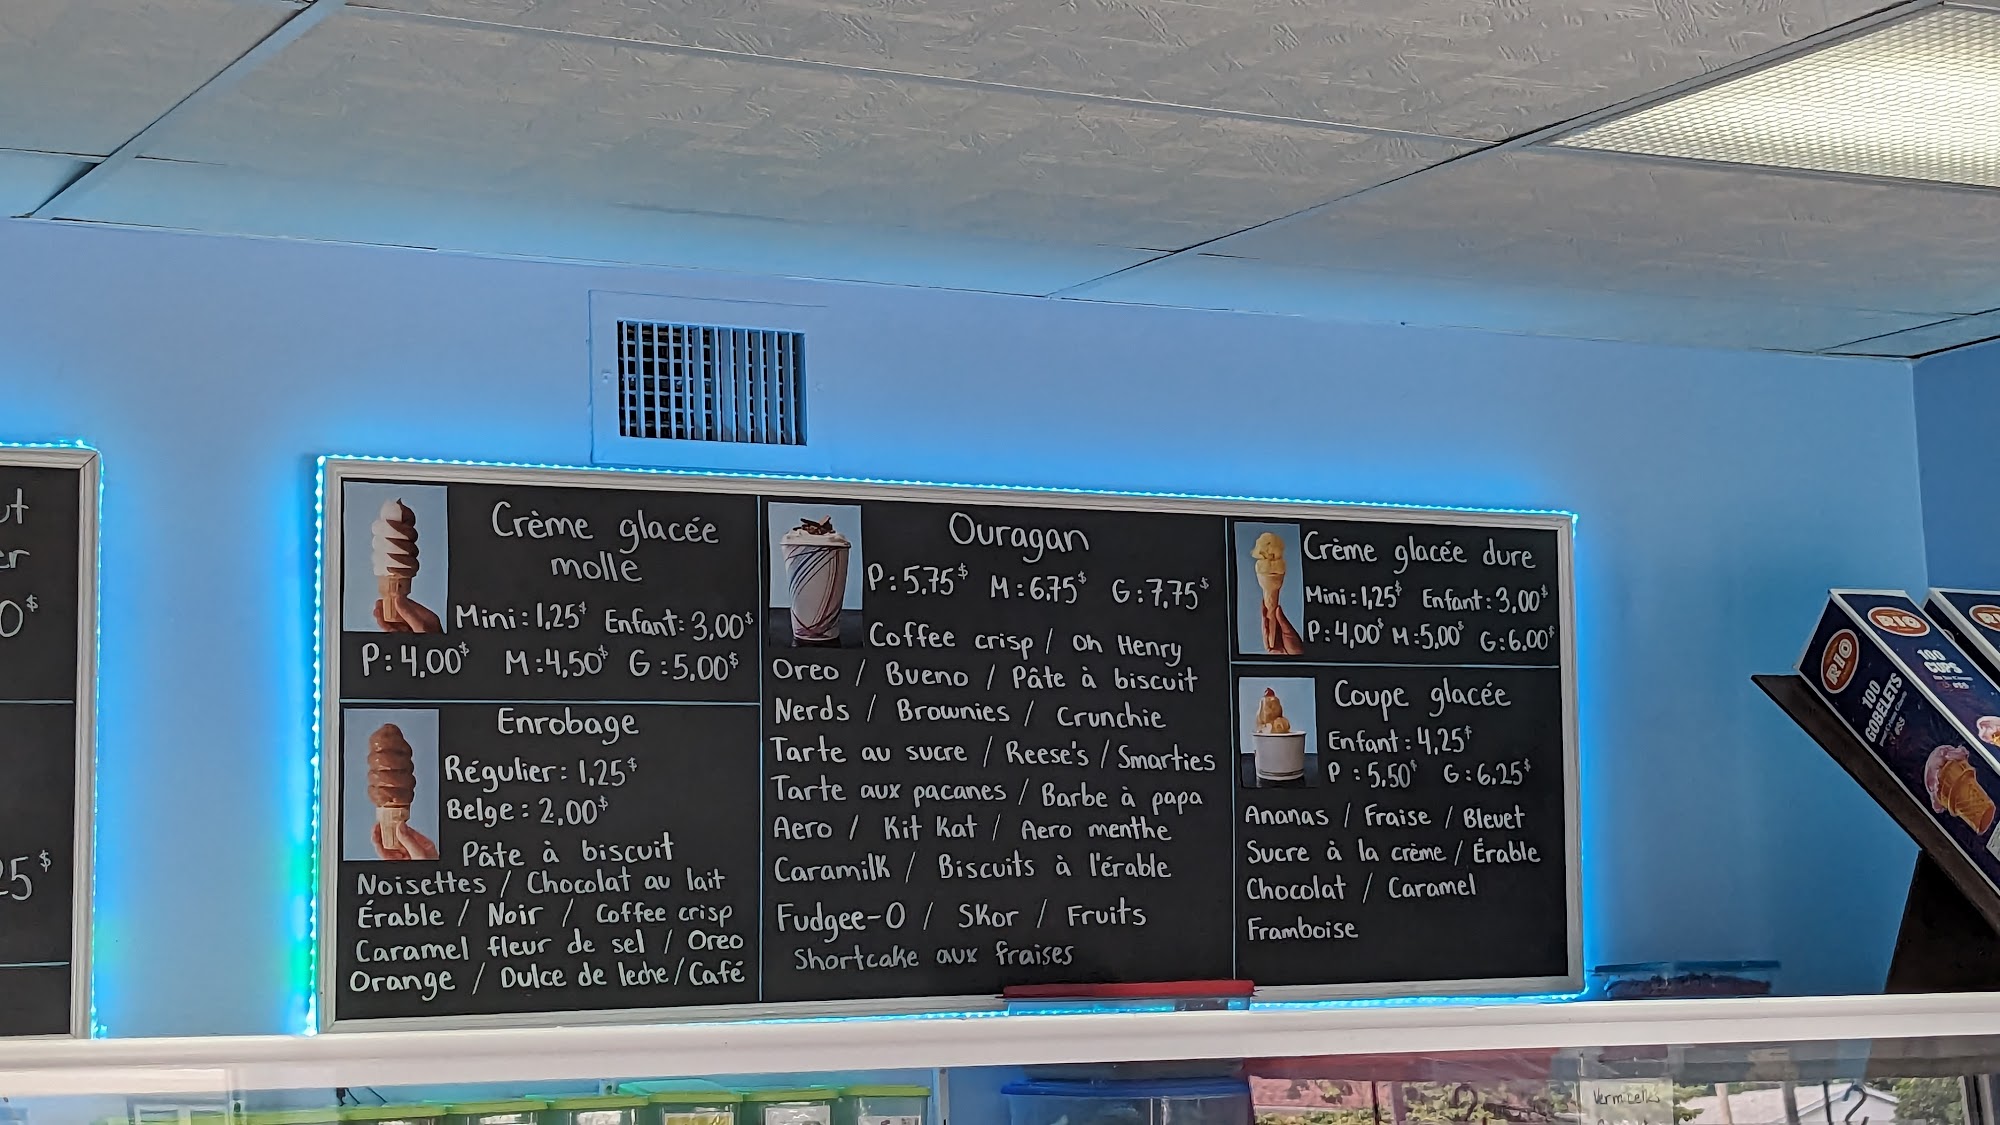 ut
er
0$
25$
Crème glacée
molle
Mini: 1,25$ Enfant: 3,00$
P: 4,00$ M: 4,50$ G: 5,00$
Enrobage
Régulier: 1,25$
Belge: 2,00$
Pâte à biscuit
Noisettes / Chocolat au lait
Érable / Noir / Coffee crisp
Caramel fleur de sel / Oreo
Orange / Dulce de leche / Café
Ouragan
P: 5,75$ M: 6,75$ G: 7,75$
Coffee crisp / Oh Henry
Oreo / Bueno / Pâte à biscuit
Nerds / Brownies / Crunchie
Tarte au sucre / Reese's / Smarties
Tarte aux pacanes / Barbe à papa
Aero / Kit Kat / Aero menthe
Caramilk / Biscuits à l'érable
Fudgee-O / Skor / Fruits
Shortcake aux fraises
Crème glacée dure
Mini: 1,25$ Enfant: 3,00$
P: 4,00$ M: 5,00$ G: 6,00$
Coupe glacée
Enfant: 4,25$
P: 5,50$ G: 6,25$
Ananas / Fraise / Bleuet
Sucre à la crème / Érable
Chocolat / Caramel
Framboise
RIO
100
GOBELETS
RIO
100
CUPS
RIO
Vermicelles